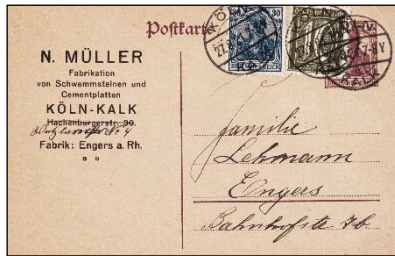 Postkarte
N. MÜLLER
Fabrikation
von Schwemmsteinen und
Cementplatten
KÖLN-KALK
Hachenburgerstr. 30.
Fabrik: Engers a. Rh.
30
KÖLN
KALK
Familie
Lehmann
Engers
Bahnhofstr. 7b.